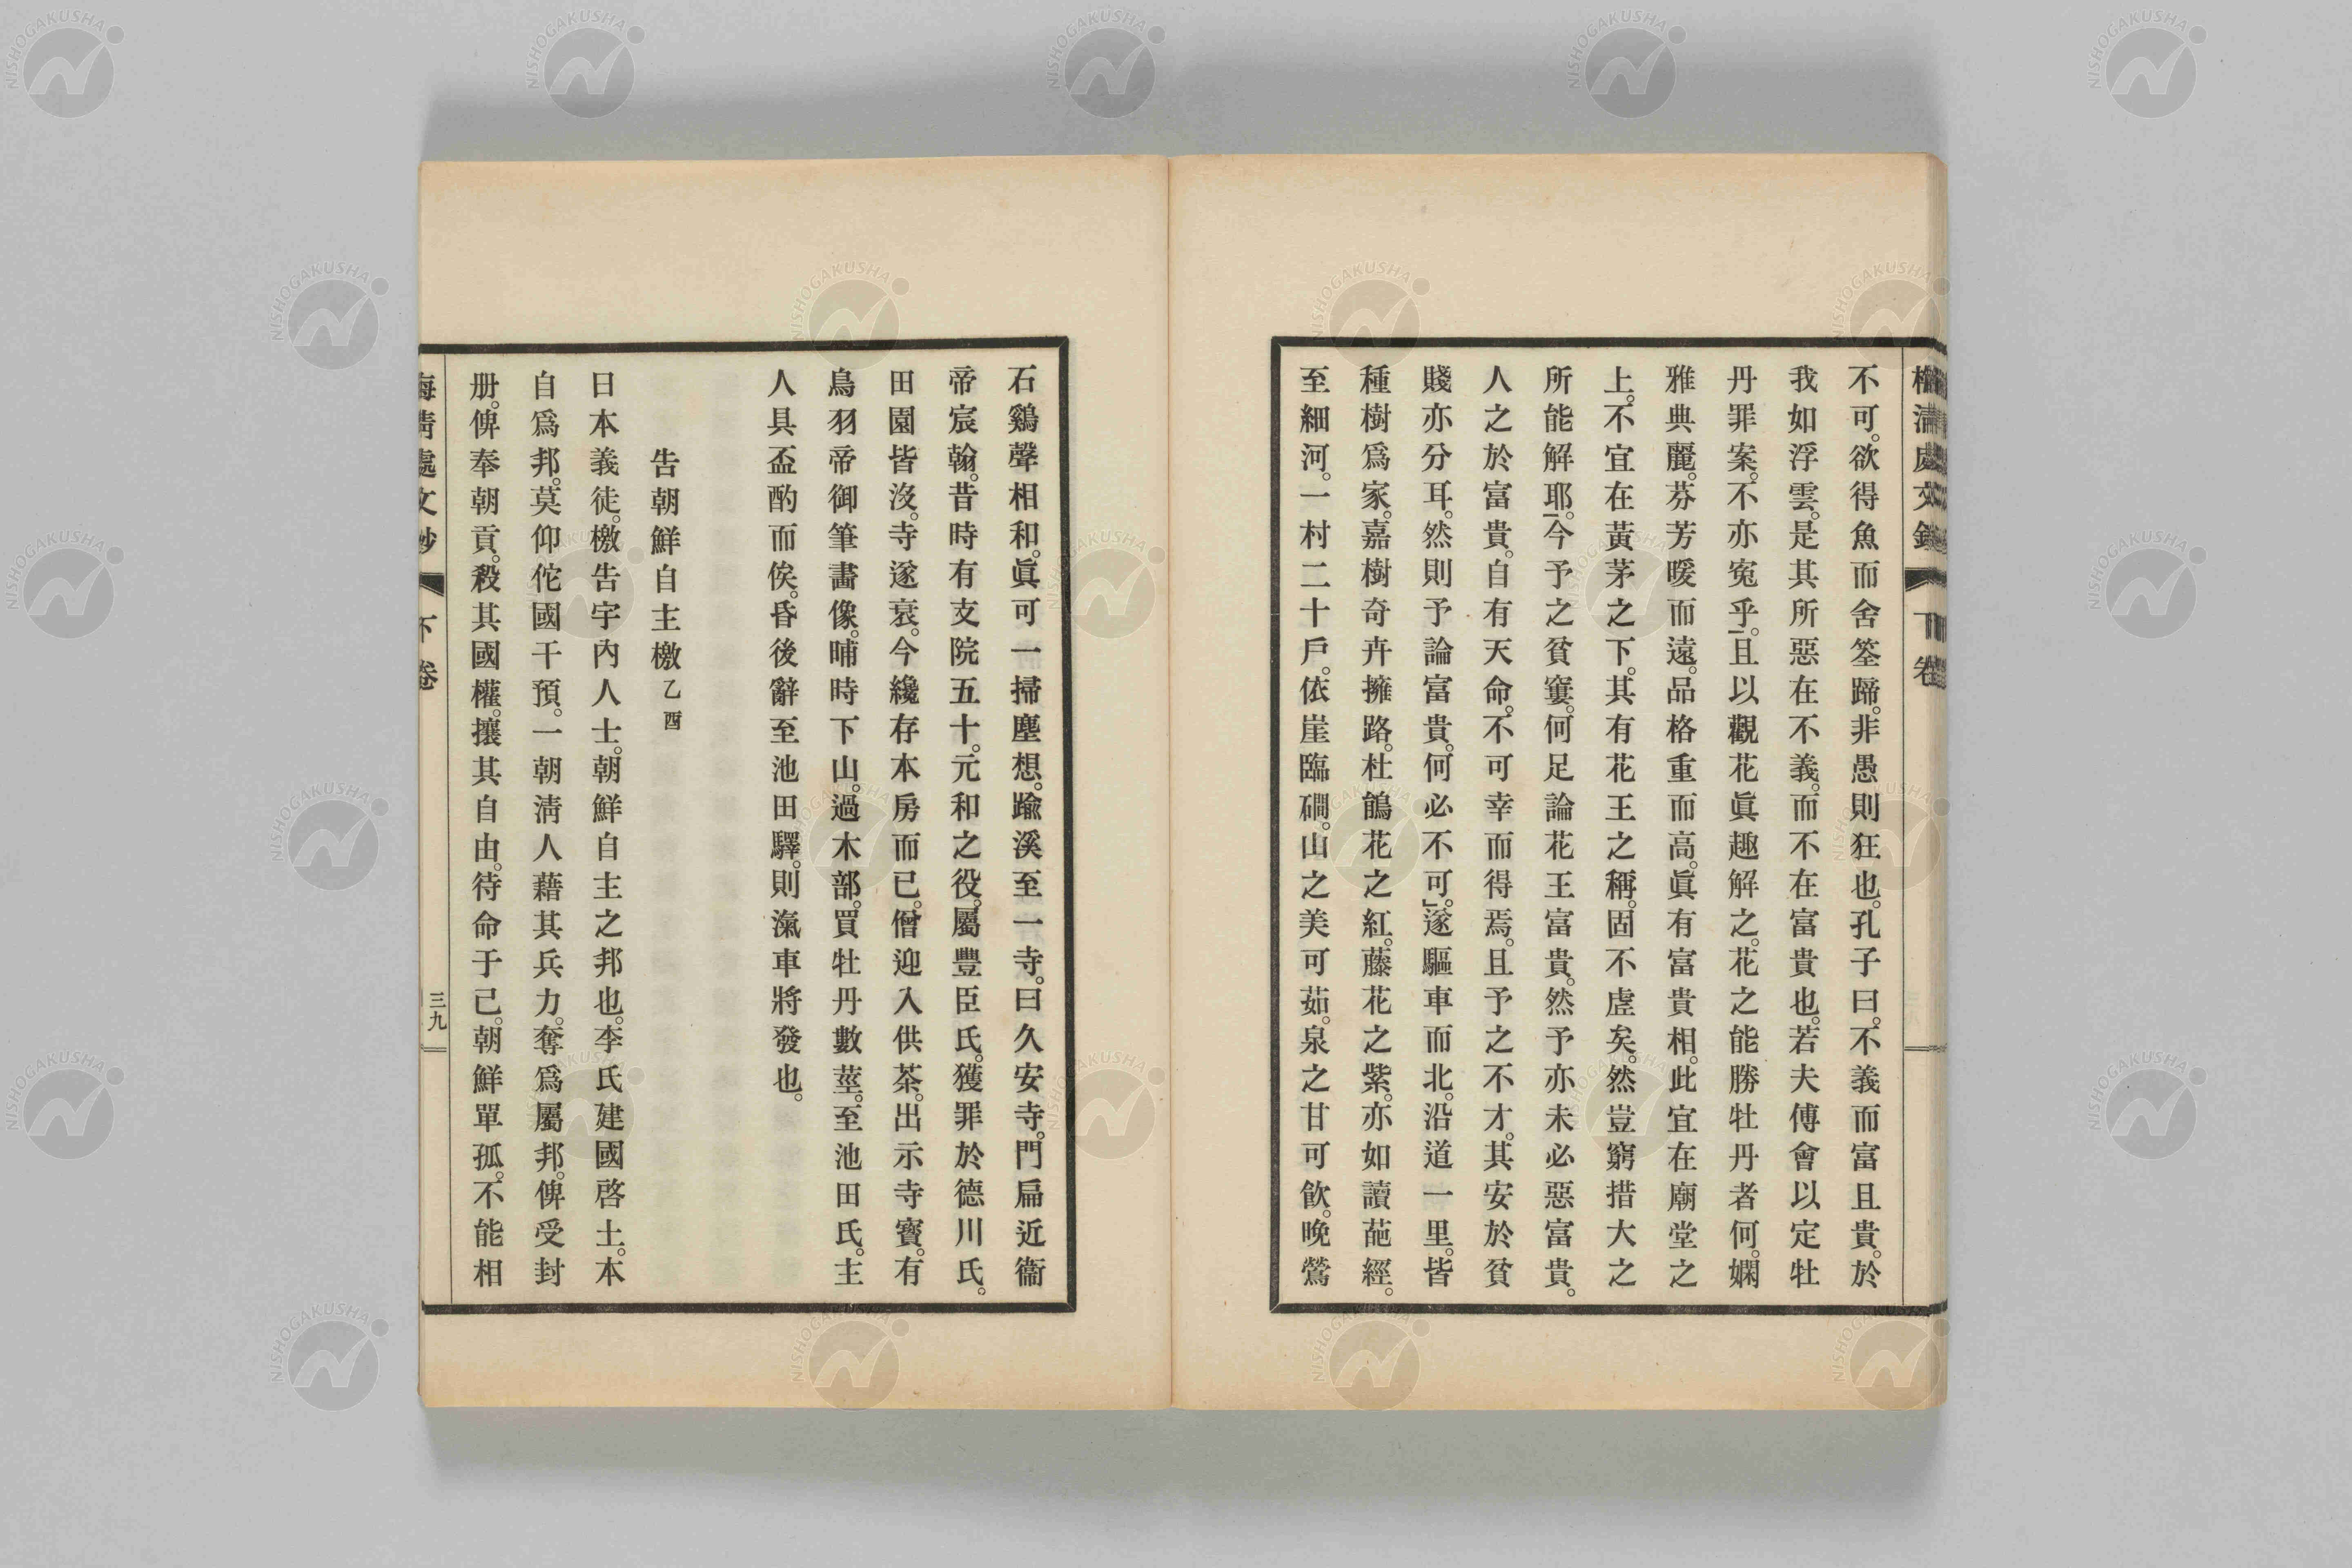 不可。欲得魚而舍筌蹄。非愚則狂也。孔子曰。不義而富且貴。於
我如浮雲。是其所惡在不義。而不在富貴也。若夫傅會以定牡
丹罪案。不亦寃乎。且以觀花眞趣解之。花之能勝牡丹者何。嫻
雅典麗。芬芳暖而遠。品格重而高。眞有富貴相。此宜在廟堂之
上。不宜在黃茅之下。其有花王之稱。固不虛矣。然豈窮措大之
所能解耶。今予之貧窶。何足論花王富貴。然予亦未必惡富貴。
人之於富貴。自有天命。不可幸而得焉。且予之不才。其安於貧
賤亦分耳。然則予論富貴。何必不可。」遂驅車而北。沿道一里。皆
種樹爲家。嘉樹奇卉擁路。杜鵑花之紅。藤花之紫。亦如讀葩經。
至細河。一村二十戶。依崖臨磵。山之美可茹。泉之甘可飮。晚鶯
石鷄聲相和。眞可一掃塵想。踰溪至一寺。曰久安寺。門扁近衞
帝宸翰。昔時有支院五十。元和之役。屬豐臣氏。獲罪於德川氏。
田園皆沒。寺遂衰。今纔存本房而已。僧迎入供茶。出示寺寶。有
鳥羽帝御筆畵像。晡時下山。過木部。買牡丹數莖。至池田氏。主
人具盃酌而俟。昏後辭至池田驛。則滊車將發也。
告朝鮮自主檄 乙酉
日本義徒。檄告宇內人士。朝鮮自主之邦也。李氏建國啓土。本
自爲邦。莫仰佗國干預。一朝淸人藉其兵力。奪爲屬邦。俾受封
册。俾奉朝貢。殺其國權。攘其自由。待命于己。朝鮮單孤。不能相
下卷
三九
NISHOGAKUSHA